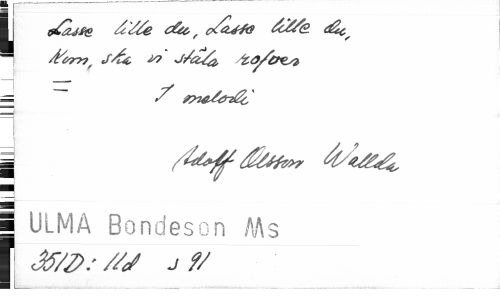 Lasse lille du, Lasse lille du,
Kom, ska vi stäla rofver
=
I melodi
Adolf Olsson Wallda
ULMA Bondeson Ms
351D: 11d s 91